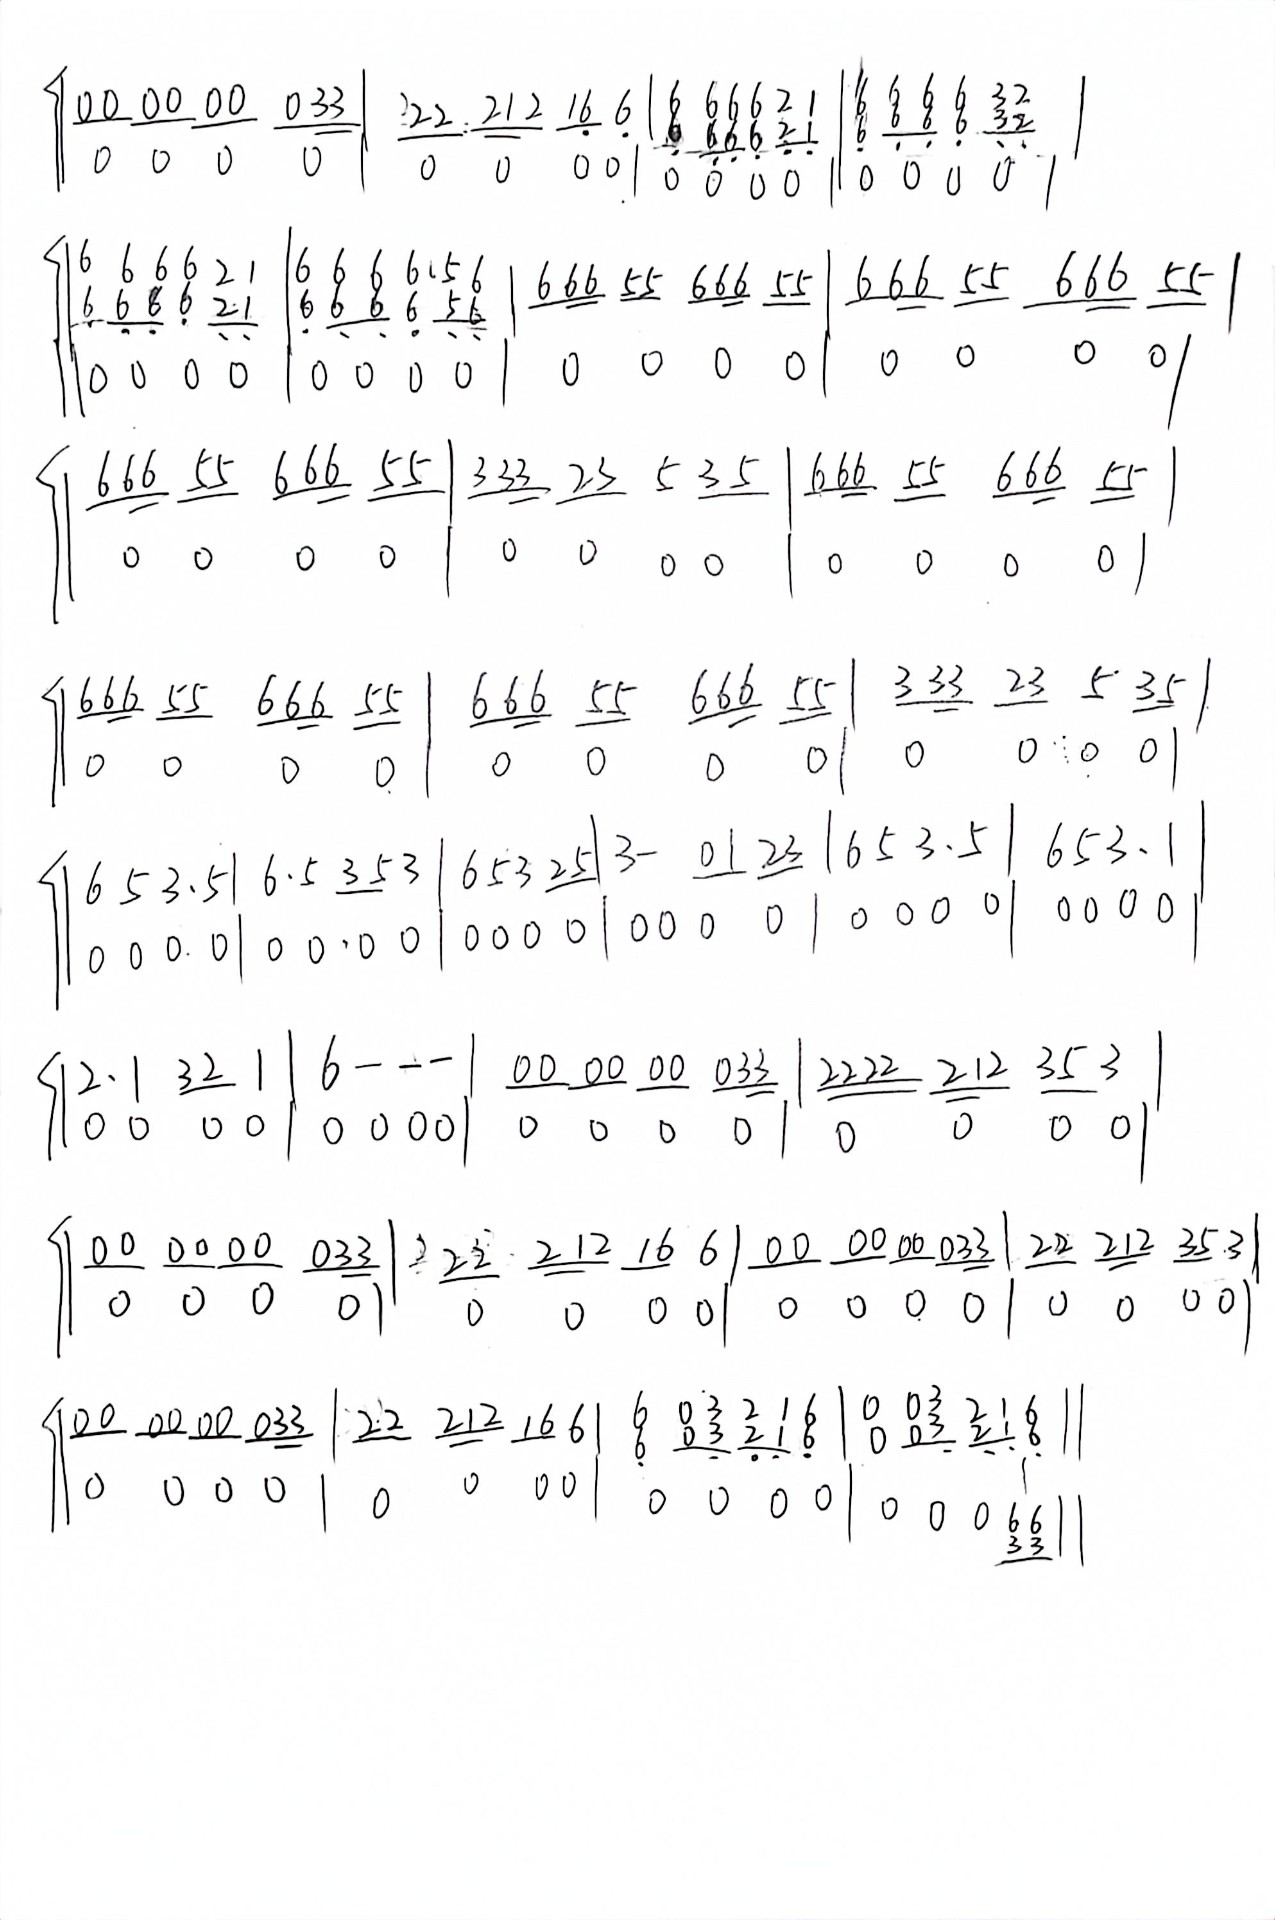 00 00 00 033 | 22 212 16 6 | 6 6 6 6 2 1 | 6 6 6 6 32 |
6 6 6 6 2 1 | 6 6 6 6 32
0 0 0 0 | 0 0 0 0 | 0 0 0 0 | 0 0 0 0 |
6 6 6 6 2 1 | 6 6 6 6 5 6 | 666 55 666 55 | 666 55 666 55 |
6 6 6 6 2 1 | 6 6 6 6 5 6
0 0 0 0 | 0 0 0 0 | 0 0 0 0 | 0 0 0 0 |
666 55 666 55 | 333 23 5 35 | 666 55 666 55 |
0 0 0 0 | 0 0 0 0 | 0 0 0 0 |
666 55 666 55 | 666 55 666 55 | 333 23 5 35 |
0 0 0 0 | 0 0 0 0 | 0 0 0 0 |
6 5 3.5 | 6.5 353 | 653 25 | 3- 01 23 | 6 5 3.5 | 653.1 |
0 0 0.0 | 0 0.0 0 | 0 0 0 0 | 0 0 0 0 | 0 0 0 0 | 0 0 0 0 |
2.1 32 1 | 6--- | 00 00 00 033 | 2222 212 35 3 |
0 0 0 0 | 0 0 0 0 | 0 0 0 0 | 0 0 0 0 |
00 00 00 033 | 22 212 16 6 | 00 00 00 033 | 22 212 35 3 |
0 0 0 0 | 0 0 0 0 | 0 0 0 0 | 0 0 0 0 |
00 00 00 033 | 22 212 16 6 | 6 03 21 6 | 0 03 21 6 ||
6 03 21 6 | 0 03 21 6
0 0 0 0 | 0 0 0 0 | 0 0 0 0 | 0 0 0 66 ||
33